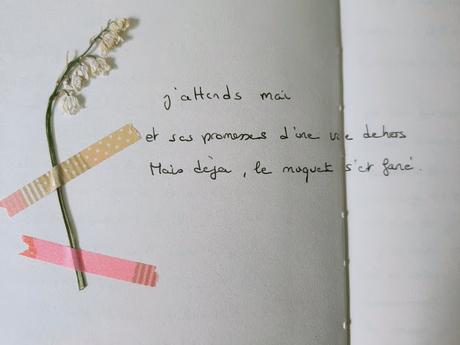 j'attends mai
et ses promesses d'une vie dehors
Mais déjà, le muguet s'est fané.